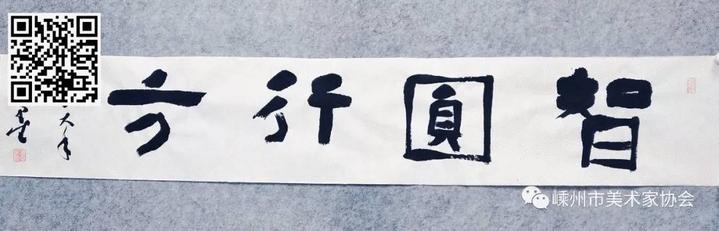 智圓行方
嵊州市美术家协会